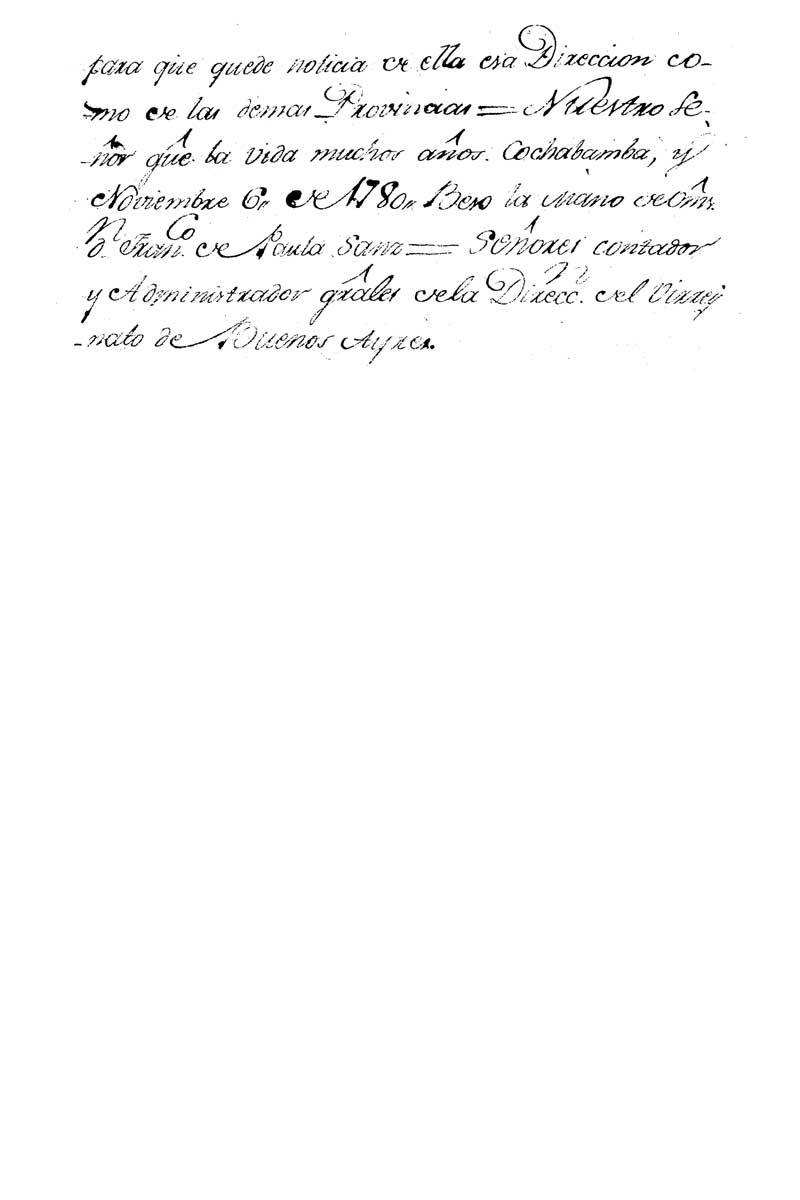 para que quede noticia de ella esa Direccion co-
-mo de las demas Provincias = Nuestro Se-
-ñor gûe. la vida muchos años. Cochabamba, y
Noviembre 6,, de 1780,, Beso la Mano de Vms.
Dn. Franco. de Paula Sanz = Señores contador
y Administrador grâles de la Direccn. del Virrey
-nato de Buenos Ayres.